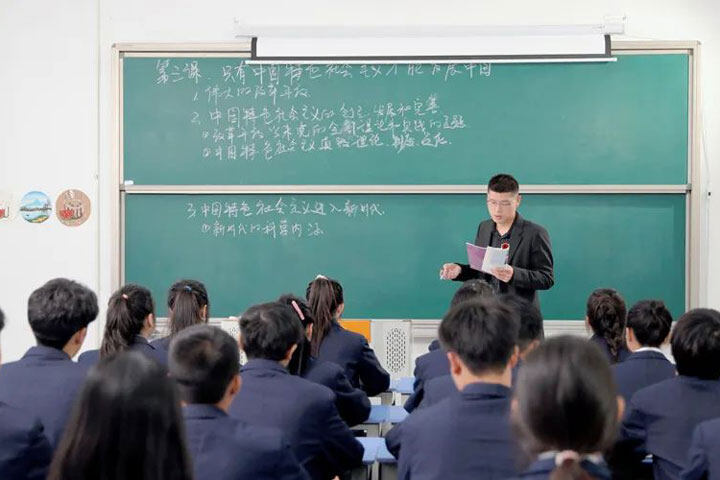 第三课、只有中国特色社会主义才能发展中国
1. 伟大的改革开放
2. 中国特色社会主义的创立、发展和完善
①改革开放以来党的全部理论和实践的主题
②中国特色社会主义道路、理论、制度、文化
3. 中国特色社会主义进入新时代
①新时代的科学内涵